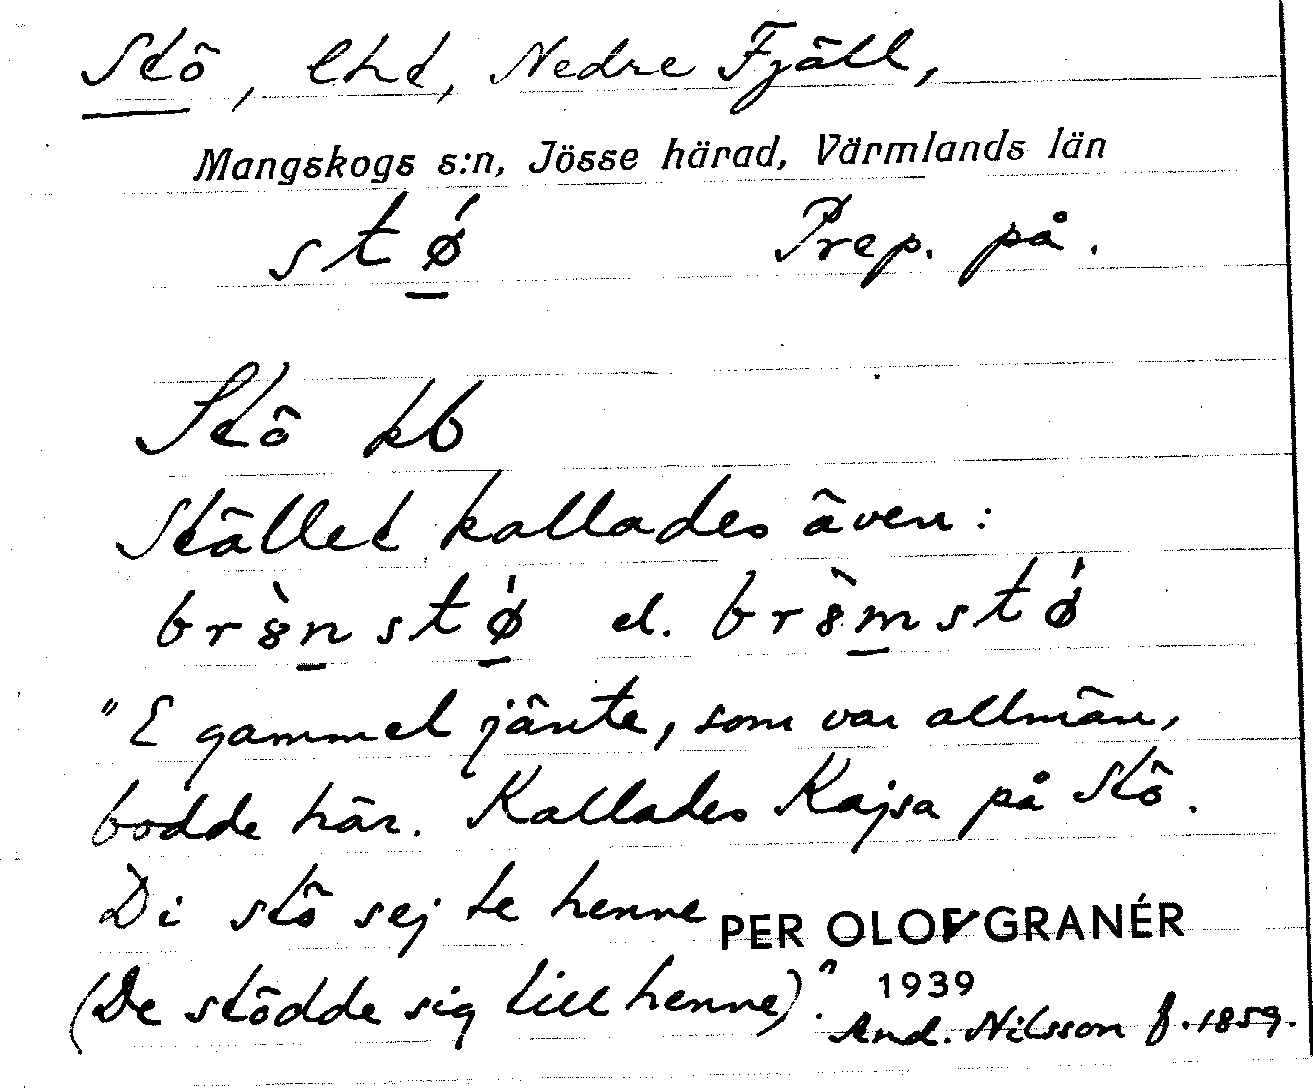 Stö, lht, Nedre Fjäll,
Mangskogs s:n, Jösse härad, Värmlands län
stǿ Prep. på.
Stö kb
Stället kallades även:
br8̀nstǿ el. br8̀mstǿ
"E gammel jänte, som var allmän,
bodde här. Kallades Kajsa på Stö.
Di stö sej te henne
(De stödde sig till henne)."
PER OLOF GRANÉR
1939
And. Nilsson f. 1859.